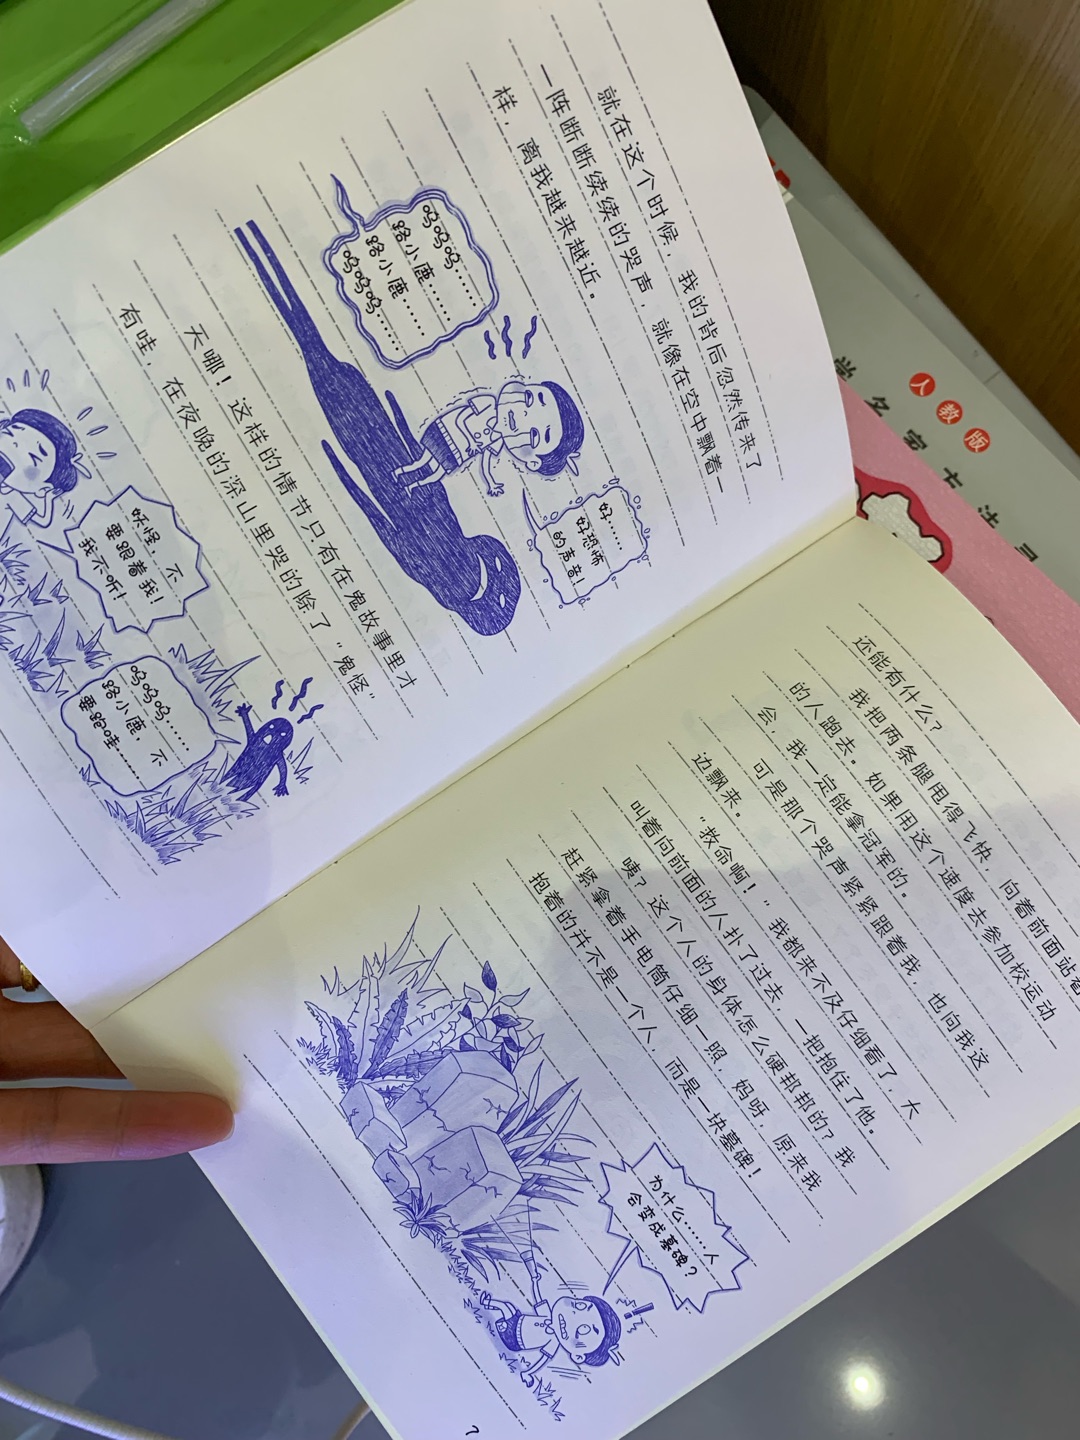 就在这个时候，我的背后忽然传来了
一阵断断续续的哭声，就像在空中飘着一
样，离我越来越近。
呜呜呜……
路小鹿……
路小鹿……
呜呜呜……
好……
好恐怖
的声音！
天哪！这样的情节只有在鬼故事里才
有哇，在夜晚的深山里哭的除了“鬼怪”
妖怪，不
要跟着我！
我不听！
呜呜呜……
路小鹿，不
要跑哇……
还能有什么？
我把两条腿甩得飞快，向着前面站着
的人跑去。如果用这个速度去参加校运动
会，我一定能拿冠军的。
可是那个哭声紧紧跟着我，也向我这
边飘来。
“救命啊！”我都来不及仔细看了，大
叫着向前面的人扑了过去，一把抱住了他。
咦？这个人的身体怎么硬邦邦的？我
赶紧拿着手电筒仔细一照，妈呀，原来我
抱着的并不是一个人，而是一块墓碑！
为什么……人
会变成墓碑？
7
人教版